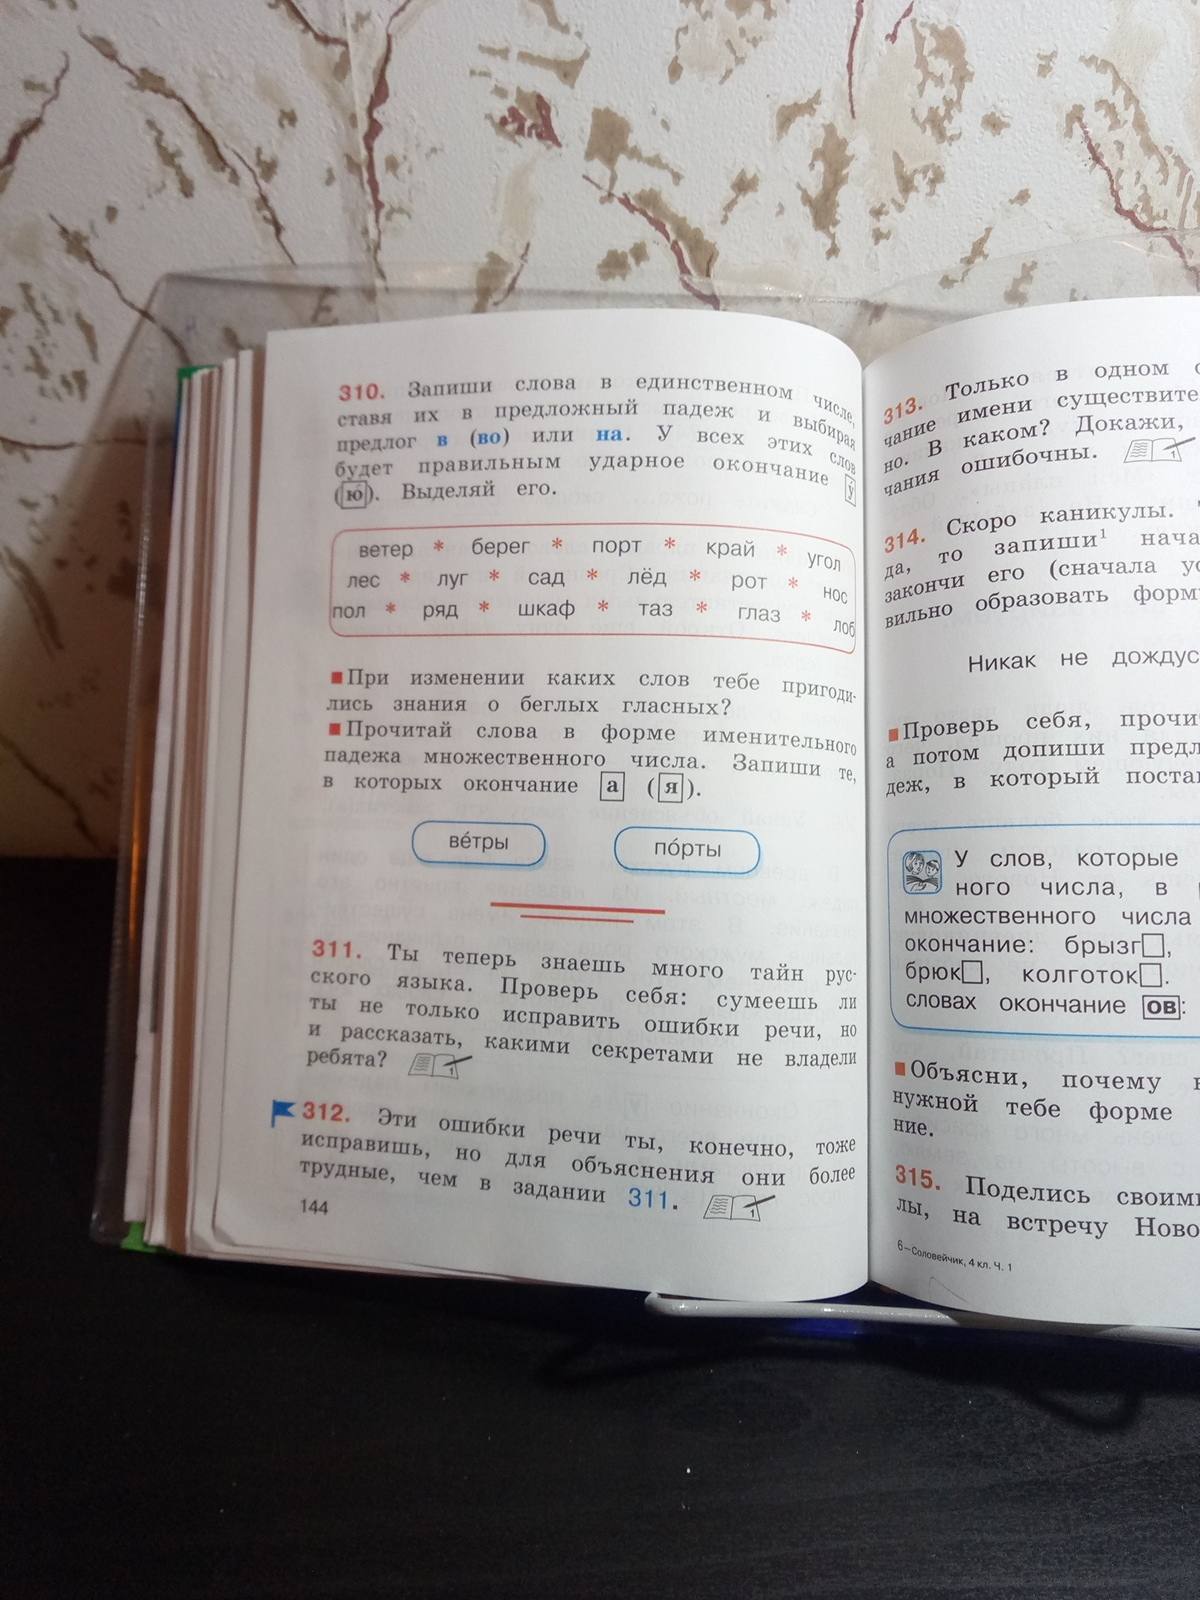 310. Запиши слова в единственном числе,
ставя их в предложный падеж и выбирая
предлог в (во) или на. У всех этих слов
будет правильным ударное окончание у́
(ю́). Выделяй его.
ветер * берег * порт * край * угол
лес * луг * сад * лёд * рот * нос
пол * ряд * шкаф * таз * глаз * лоб
При изменении каких слов тебе пригоди-
лись знания о беглых гласных?
Прочитай слова в форме именительного
падежа множественного числа. Запиши те,
в которых окончание а (я).
ве́тры по́рты
311. Ты теперь знаешь много тайн рус-
ского языка. Проверь себя: сумеешь ли
ты не только исправить ошибки речи, но
и рассказать, какими секретами не владели
ребята? 1
312. Эти ошибки речи ты, конечно, тоже
исправишь, но для объяснения они более
трудные, чем в задании 311. 1
144
313. Только в одном
чание имени
но. В каком? Докажи,
чания ошибочны. 1
314. Скоро каникулы.
да, то запиши¹
закончи его (сначала
вильно образовать
Никак не
Проверь себя,
а потом допиши
деж, в который
У слов, которые
ного числа, в
множественного числа
окончание: брызг□,
брюк□, колготок□.
словах окончание ов:
Объясни, почему
нужной тебе форме
ние.
315. Поделись
лы, на встречу
6–Соловейчик, 4 кл. Ч. 1